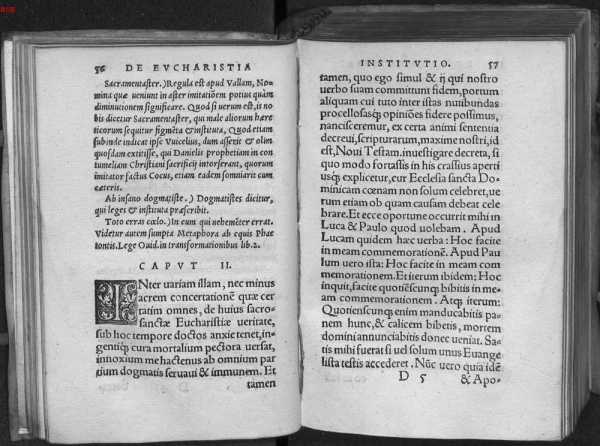 56 DE EVCHARISTIA
Sacramentaster.) Regula est apud Vallam, No-
mina quæ ueniunt in aster imitatiõem potius quàm
diminutionem significare. Quod si uerum est, is no
bis dicetur Sacramentaster, qui male aliorum hære
ticorum sequitur figmẽta & instituta, Quod etiam
subinde indicat ipse Vuicelius, dum asserit & olim
quosdam extitisse, qui Danielis prophetiam in con
tumeliam Christiani sacrificij intorserant, quorum
imitator factus Cocus, etiam eadem somniarit cum
cæteris.
Ab insano dogmatiste.) Dogmatistes dicitur,
qui leges & instituta præscribit.
Toto erras cœlo.) In eum qui uehemẽter errat.
Videtur autem sumpta Metaphora ab equis Phae
tontis. Lege Ouid. in transformationibus lib. 2.
CAPVT II.
INter uariam illam, nec minus
acrem concertationẽ quæ cer
tatim omnes, de huius sacro-
sanctæ Eucharistiæ ueritate,
sub hoc tempore doctos anxie tenet, in-
gentiq; cura mortalium pectora uersat,
innoxium me hactenus ab omnium par
tium dogmatis seruaui & immunem. Et
tamen
INSTITVTIO. 57
tamen, quo ego simul & ij qui nostro
uerbo suam committunt fidem, portum
aliquam cui tuto inter istas nutibundas
procellosasq; opiniões fidere possimus,
nancisceremur, ex certa animi sententia
decreui, scripturarum, maxime nostri, id
est, Noui Testam. inuestigare decreta, si
quo modo fortassis in his crassius aperti
usq; explicetur, cur Ecclesia sancta Do-
minicam cœnam non solum celebret, ue
rum etiam ob quam causam debeat cele
brare. Et ecce oportune occurrit mihi in
Luca & Paulo quod uolebam. Apud
Lucam quidem hæc uerba: Hoc facite
in meam commemorationẽ. Apud Pau
lum uero ista: Hoc facite in meam com
memorationem. Et iterum ibidem; Hoc
inquit, facite quotiẽscunq; bibitis in me-
am commemorationem. Atq; iterum:
Quotienscunq; enim manducabitis pa-
nem hunc, & calicem bibetis, mortem
domini annunciabitis donec ueniat. Sa-
tis mihi fuerat si uel solum unus Euange
lista testis accederet. Nũc uero quia idẽ
D 5 & Apo-